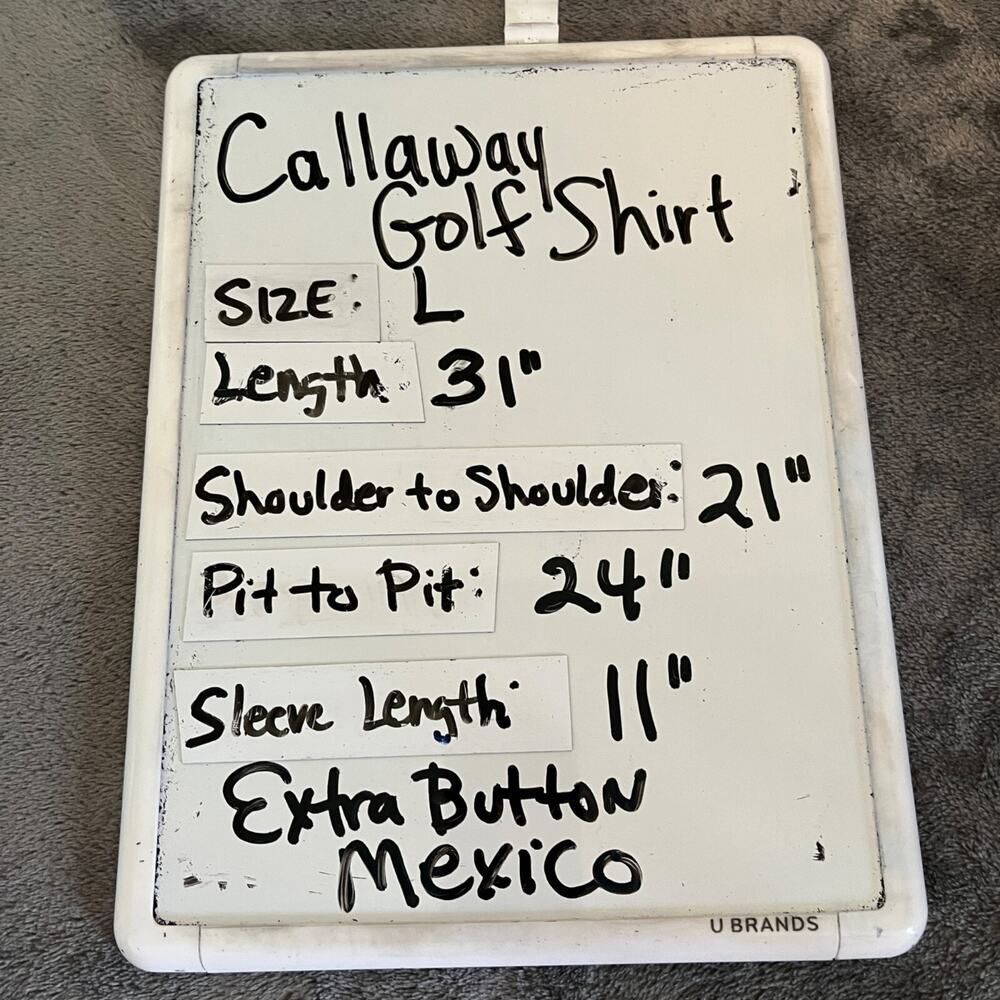 Callaway
Golf Shirt
SIZE: L
Length 31"
Shoulder to Shoulder: 21"
Pit to Pit: 24"
Sleeve Length: 11"
Extra Button
Mexico
U BRANDS